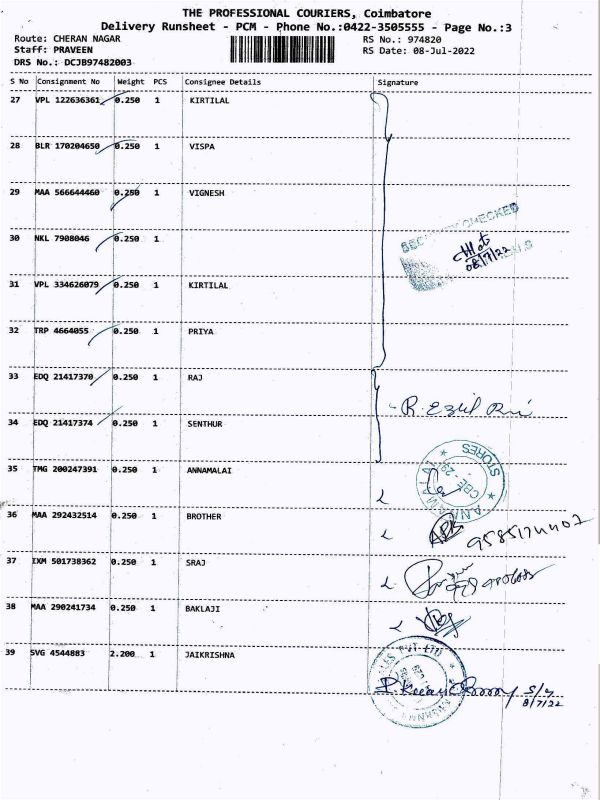 THE PROFESSIONAL COURIERS, Coimbatore
Delivery Runsheet - PCM - Phone No.:0422-3505555 - Page No.:3
Route: CHERAN NAGAR RS No.: 974820
Staff: PRAVEEN RS Date: 08-Jul-2022
DRS No.: DCJB97482003
S No Consignment No Weight PCS Consignee Details Signature
27 VPL 122636361 0.250 1 KIRTILAL
28 BLR 170204650 0.250 1 VISPA
29 MAA 566644460 0.250 1 VIGNESH
SECURITY CHECKED
30 NKL 7908046 0.250 1
08/7/22
31 VPL 334626079 0.250 1 KIRTILAL
32 TRP 4664055 0.250 1 PRIYA
33 EDQ 21417370 0.250 1 RAJ
34 EDQ 21417374 0.250 1 SENTHUR
35 TMG 200247391 0.250 1 ANNAMALAI
ANNAMALAI STORES CBE
36 MAA 292432514 0.250 1 BROTHER
37 IXM 501738362 0.250 1 SRAJ
38 MAA 290241734 0.250 1 BAKLAJI
39 SVG 4544883 2.200 1 JAIKRISHNA
8/7/22